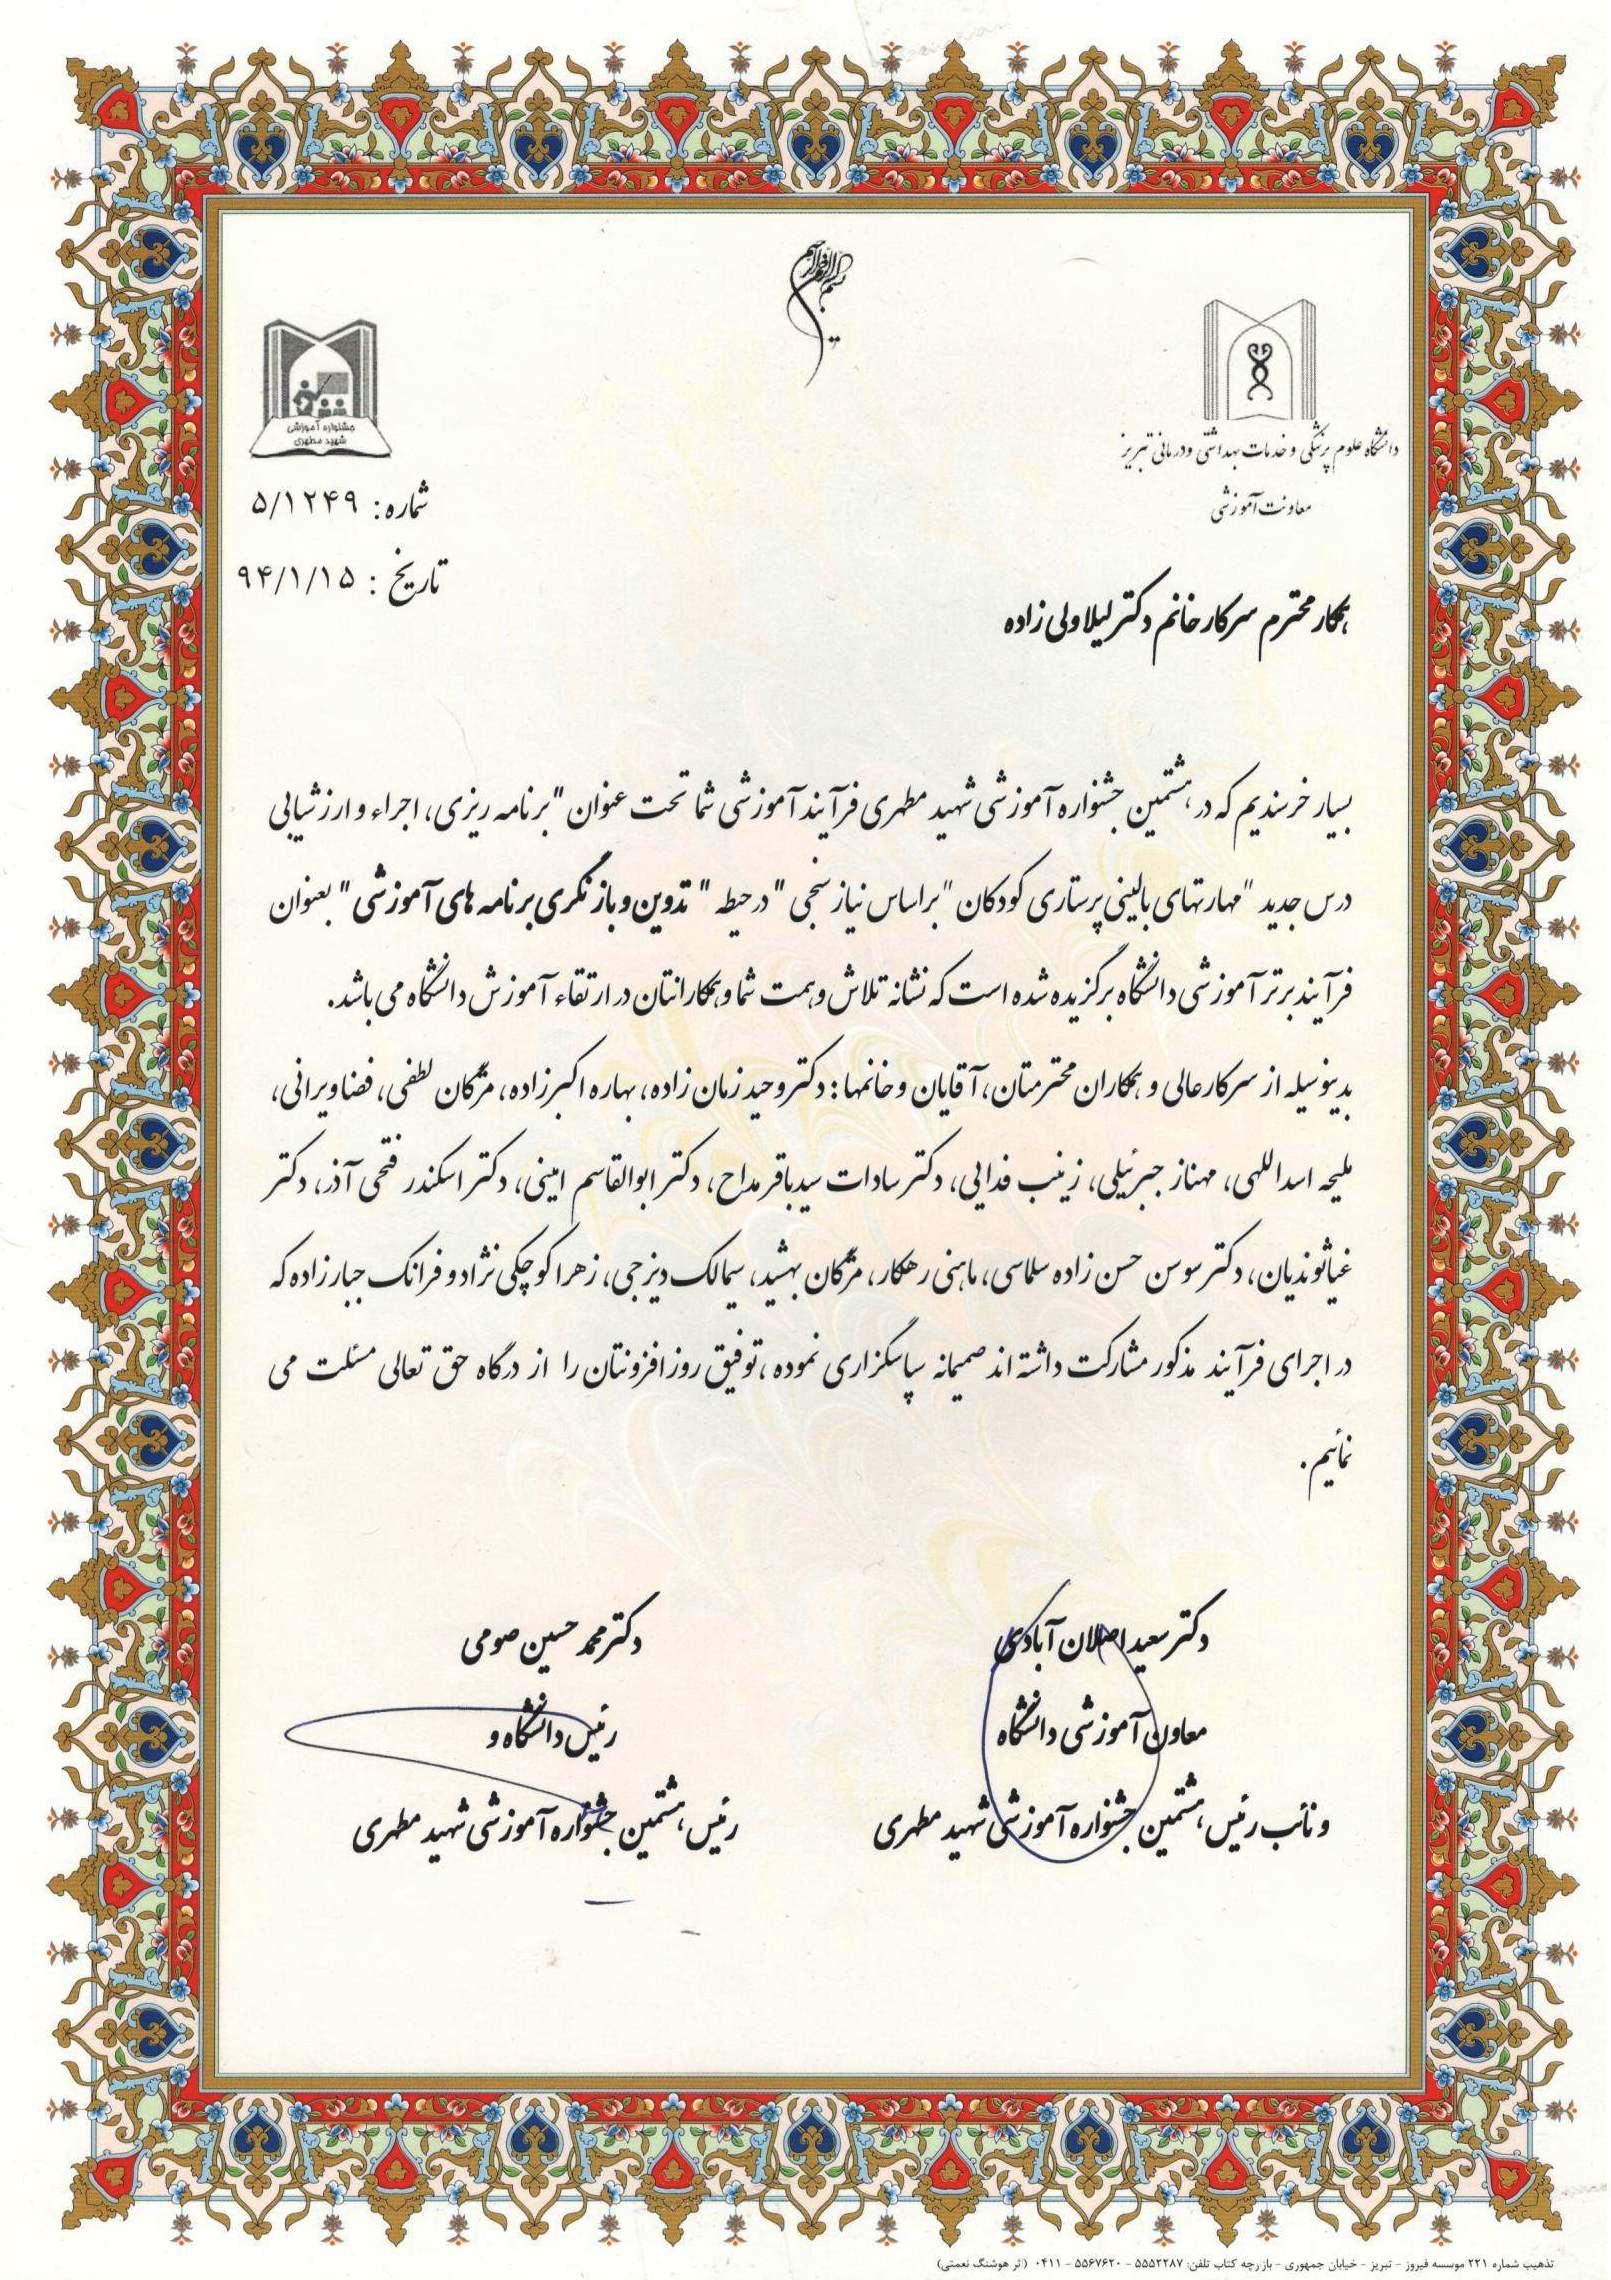 بسم الله الرحمن الرحیم
دانشگاه علوم پزشکی و خدمات بهداشتی و درمانی تبریز
معاونت آموزشی
جشنواره آموزشی
شهید مطهری
شماره: ۵/۱۲۴۹
تاریخ : ۹۴/۱/۱۵
همکار محترم سرکار خانم دکتر لیلا ولی زاده
بسیار خرسندیم که در هشتمین جشنواره آموزشی شهید مطهری فرآیند آموزشی شما تحت عنوان "برنامه ریزی، اجراء و ارزشیابی
درس جدید "مهارتهای بالینی پرستاری کودکان" براساس نیاز سنجی" در حیطه " تدوین و بازنگری برنامه های آموزشی" بعنوان
فرآیند برتر آموزشی دانشگاه برگزیده شده است که نشانه تلاش و همت شما و همکارانتان در ارتقاء آموزش دانشگاه می باشد.
بدینوسیله از سرکار عالی و همکاران محترمتان، آقایان و خانمها: دکتر وحید زمان زاده، بهاره اکبرزاده، مژگان لطفی، فضا ویرانی،
ملیحه اسداللهی، مهناز جبرئیلی، زینب فدایی، دکتر سادات سید باقر مداح، دکتر ابوالقاسم امینی، دکتر اسکندر فتحی آذر، دکتر
غیاثوندیان، دکتر سوسن حسن زاده سلماسی، ماهنی رهکار، مژگان بهشید، سیمالک دیزجی، زهرا کوچکی نژاد و فرانک جبارزاده که
در اجرای فرآیند مذکور مشارکت داشته اند صمیمانه سپاسگزاری نموده، توفیق روزافزونتان را از درگاه حق تعالی مسئلت می
نمائیم.
دکتر سعید اصلان آبادی
معاون آموزشی دانشگاه
و نائب رئیس هشتمین جشنواره آموزشی شهید مطهری
دکتر محمد حسین صومی
رئیس دانشگاه و
رئیس هشتمین جشنواره آموزشی شهید مطهری
تذهیب شماره ۲۲۱ موسسه فیروز - تبریز - خیابان جمهوری - بازارچه کتاب تلفن: ۵۵۵۲۲۸۷ - ۵۵۶۷۶۲۰ - ۰۴۱۱ (اثر هوشنگ نعمتی)